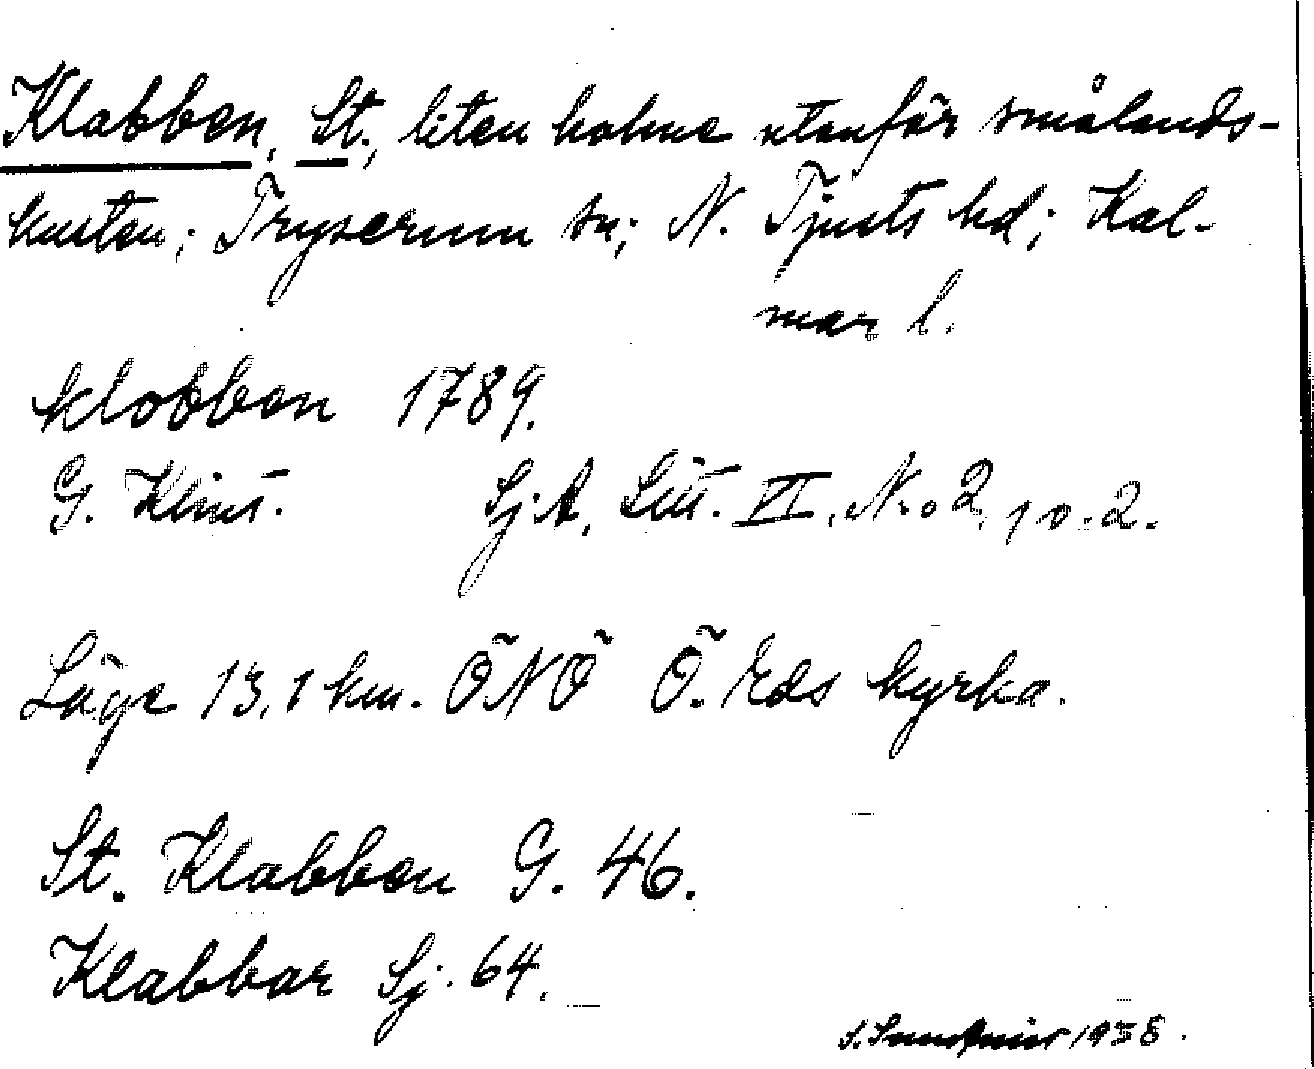 Klabben, St., liten holme utanför smålands-
kusten; Tryserum sn; N. Tjusts hd; Kal-
mar l.
klobben 1789.
G. Klint. Sj.A. Litt. VI. No 2, 10.2.
Läge 13,1 km. ÖNÖ Ö. Eds kyrka.
St. Klabben G. 46.
Klabbar Sj. 64.
S. 1938.